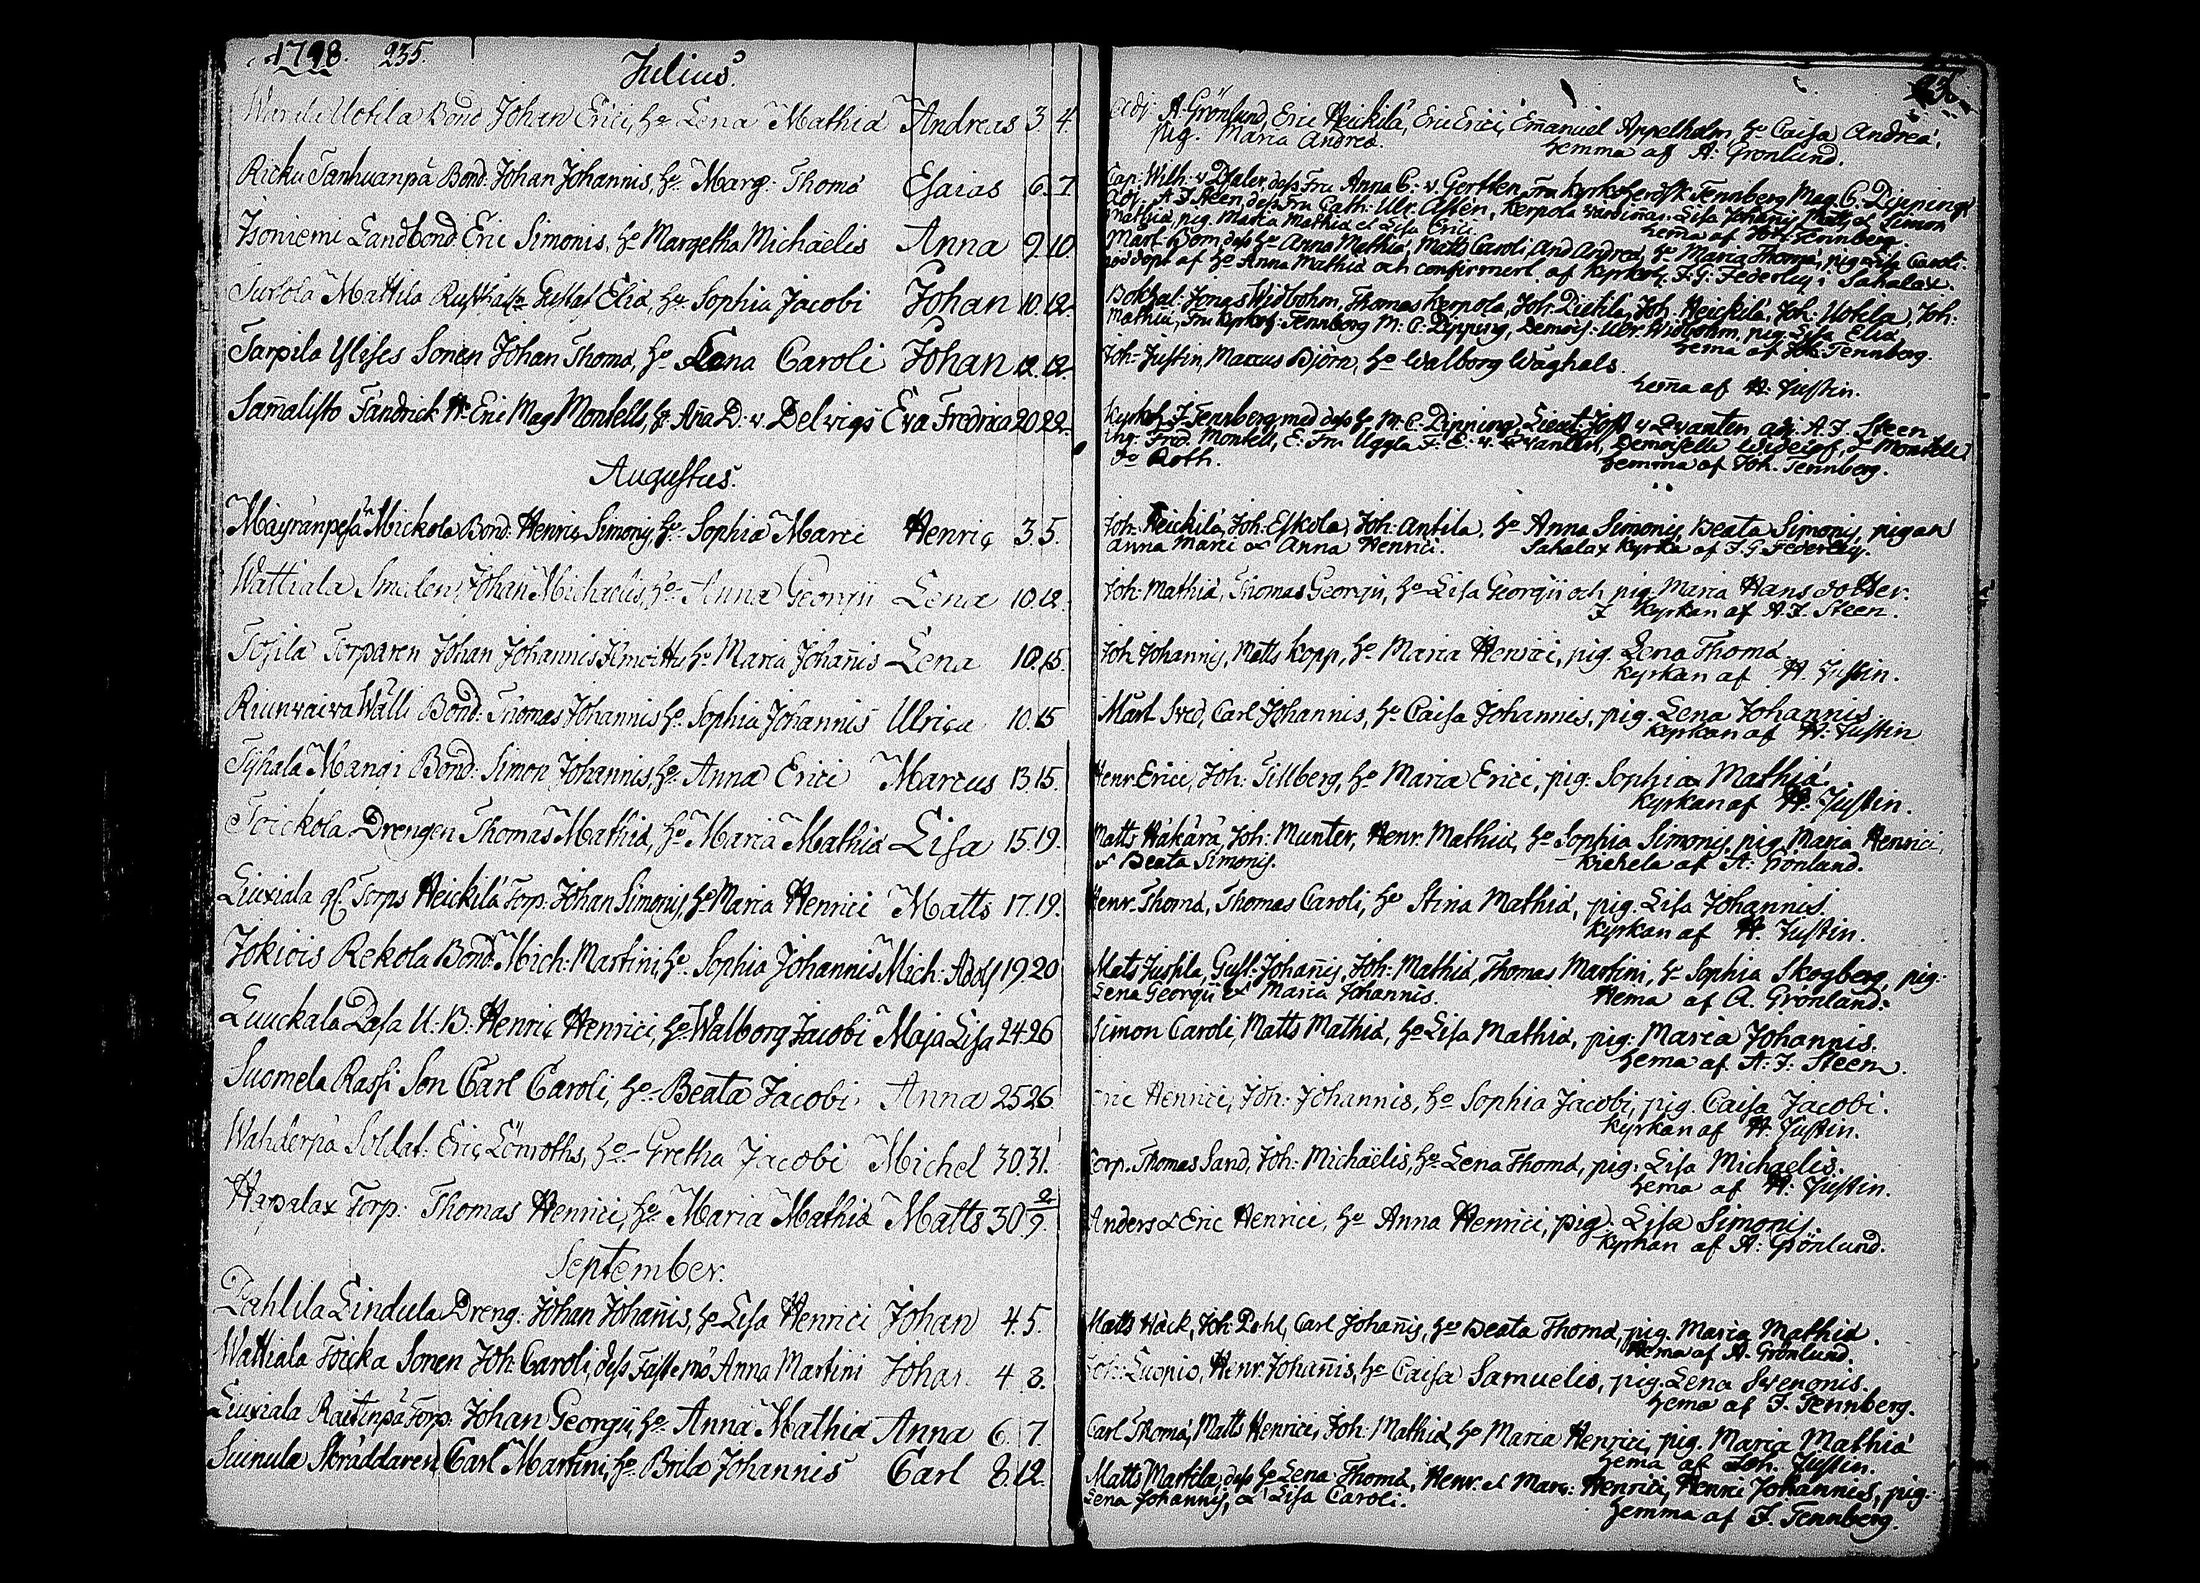 1798. 235.
Julius
Uotila Bond Johan Erici, h:o Lena Mathiæ Andreas 3. 4.
Ricku Tanhuanpä Bond. Johan Johannis, h:o Marg: Thomæ Esaias 6. 7
Isoniemi Landbond. Eric Simonis, h:o Margetha Michaëlis Anna 9. 10.
Surola Mattila Gustaf Eliæ, h:o Sophia Jacobi Johan 10. 12.
Tarpila Sonen Johan Thomæ, h:o Lena Caroli Johan 12. 12.
Sammalisto Fändrick H: Eric Mag Montells, h: Aña D: v. Delwigs Eva Fredrica 20 22.
Augustus.
Mäyränpesä Mickola Bond: Henric Simonis, h:o Sophia Marci Henric 3. 5.
Wattiala Smeden Johan Michaelis, h:o Anna Georgii Lena 10. 12.
Torparen Johan Johannis h:o Maria Johañis Lena 10. 15.
Riunvaiva Wälli Bond: Thomas Johannis h:o Sophia Johannis Ulrica 10. 15
Tyhälä Mangi Bond: Simon Johannis, h:o Anna Erici Marcus 13. 15.
Toickola Drengen Thomas Mathiæ, h:o Maria Mathiæ Lisa 15. 19.
Liuxiala Torps Heickilä Torp: Johan Simonis, h:o Maria Henrici Matts 17. 19.
Jokiois Rekola Bond: Mich: Martini, h:o Sophia Johannis Mich: Adolf 19. 20
Luuckala U: B: Henric Henrici, h:o Walborg Jacobi Maja Lisa 24. 26
Suomela Rassi Son Carl Caroli, h:o Beata Jacobi, Anna 25 26.
Wahderpä Soldat: Eric Lönroths, h:o Gretha Jacobi Michel 30. 31.
Hapalax Torp: Thomas Henrici, h:o Maria Mathiæ Matts 30 2/9.
September.
Pahlila Lindula Dreng: Johan Johañis, h:o Lisa Henrici Johan 4. 5.
Wattiala Toicka Sonen Joh: Caroli, dess Fästemö Anna Martini Johan 4. 8.
Liuxiala Raitinpä Torp: Johan Georgii, h:o Anna Mathiæ Anna 6. 7.
Suinula Skräddaren Carl Martini, h:o Brita Johannis Carl 8. 12.
Adj: A: Grönlund, Eric Heickilä, Eric Erici, Emanuel Appelholm, h:o Caisa Andreæ,
pig: Maria Andreæ. hemma af A: Grönlund.
Cap: Wilh: v dess Fru Anna C: v. Gertten, Fru Tennberg Mag. C. Dipping,
Adj: A J Steen, dess Fru Cath: Ulr. Kerpola Lisa Johanis, Matts Simon
Mathiæ, pig. Maria Mathiæ et Lisa Erici. hema af Joh: Tennberg.
Mart: Björn dess h:o Anna Mathiæ, Matts Caroli And Andreæ, h:o Maria Thomæ, pig Caroli.
nöddöpt af h:o Anna Mathiæ och confirmert af Kyrkoh: J: G: Federley i Sahalax.
Bokhål: Jonas Widbohm, Thomas Kerpola, Joh: Joh: Heickilä, Joh: Uotila, Joh:
Mathiæ, Fru Kyrkoh: Tennberg M: C: Dipping, Demois: Ulr. Widbohm, pig. Lisa Eliæ.
hema af Joh: Tennberg.
Joh: Justin, Marcus Björn, h:o Walborg Wäghals.
hema af H. Justin.
Kyrkoh: J Tennberg med dess h:o M: C: Dipping, Lieut: v Qvanten adj: A. J. Steen
Fred. Montell, E: Fru Uggla F: E: v. Qvanten, Demoiselle Montell
Roth. hemma af Joh: Tennberg.
Joh: Heickilä, Joh: Eskola, Joh: Antila, h:o Anna Simonis, Beata Simonis, pigan
Anna Marci & Anna Henrici. Sahalax Kyrka af J. G. Federley.
Joh: Mathiæ, Thomas Georgii, h:o Lisa Georgii och pig: Maria Hans dotter.
I Kyrkan af A. J. Steen.
Joh Johannis, Matts Kopp, h:o Maria Henrici, pig. Lena Thomæ
Kyrkan af H. Justin.
Mårt Sved, Carl Johannis, h:o Caisa Johannis, pig. Lena Johannis
Kyrkan af H: Justin
Henr: Erici, Joh: Tillberg, h:o Maria Erici, pig: Sophia Mathiæ
Kyrkan af H. Justin.
Matts Häkärä, Joh: Munter, Henr. Mathiæ, h:o Sophia Simonis, pig Maria Henrici,
& Beata Simonis. af A: Grönlund.
Henr. Thomæ, Thomas Caroli, h:o Stina Mathiæ, pig. Lisa Johannis.
Kyrkan af H. Justin.
Mats Jussila, Gust: Johañis, Joh: Mathiæ, Thomas Martini, h:o Sophia Skogberg, pig:
Lena Georgii & Maria Johannis. Hema af A. Grönlund.
Simon Caroli, Matts Mathiæ, h:o Lisa Mathiæ, pig: Maria Johannis.
hema af A: J. Steen.
Eric Henrici, Joh: Johannis, h:o Sophia Jacobi, pig. Caisa Jacobi.
Kyrkan af H. Justin.
Corp. Thomas Sand, Joh: Michaëlis, h:o Lena Thomæ, pig: Lisa Michaelis.
hema af H: Justin.
Anders & Eric Henrici, h:o Anna Henrici, pig: Lisa Simonis.
Kyrkan af A: Grönlund.
Matts Häck, Joh Pohl, Carl Johañis, h:o Beata Thomæ, pig. Maria Mathiæ.
Hema af A. Grönlund.
Joh: Henr: Johañis, h:o Caisa Samuelis, pig. Lena Svenonis.
hema af J. Tennberg.
Carl Thomæ, Matts Henrici, Joh: Mathiæ, h:o Maria Henrici, pig. Maria Mathiæ
hema af Joh: Justin.
Matts Martila, dess h:o Lena Thomæ, Henr. et Marc: Henrici, Henric Johannis, pig:
Lena Johannis, & Lisa Caroli.
hemma af J. Tennberg.